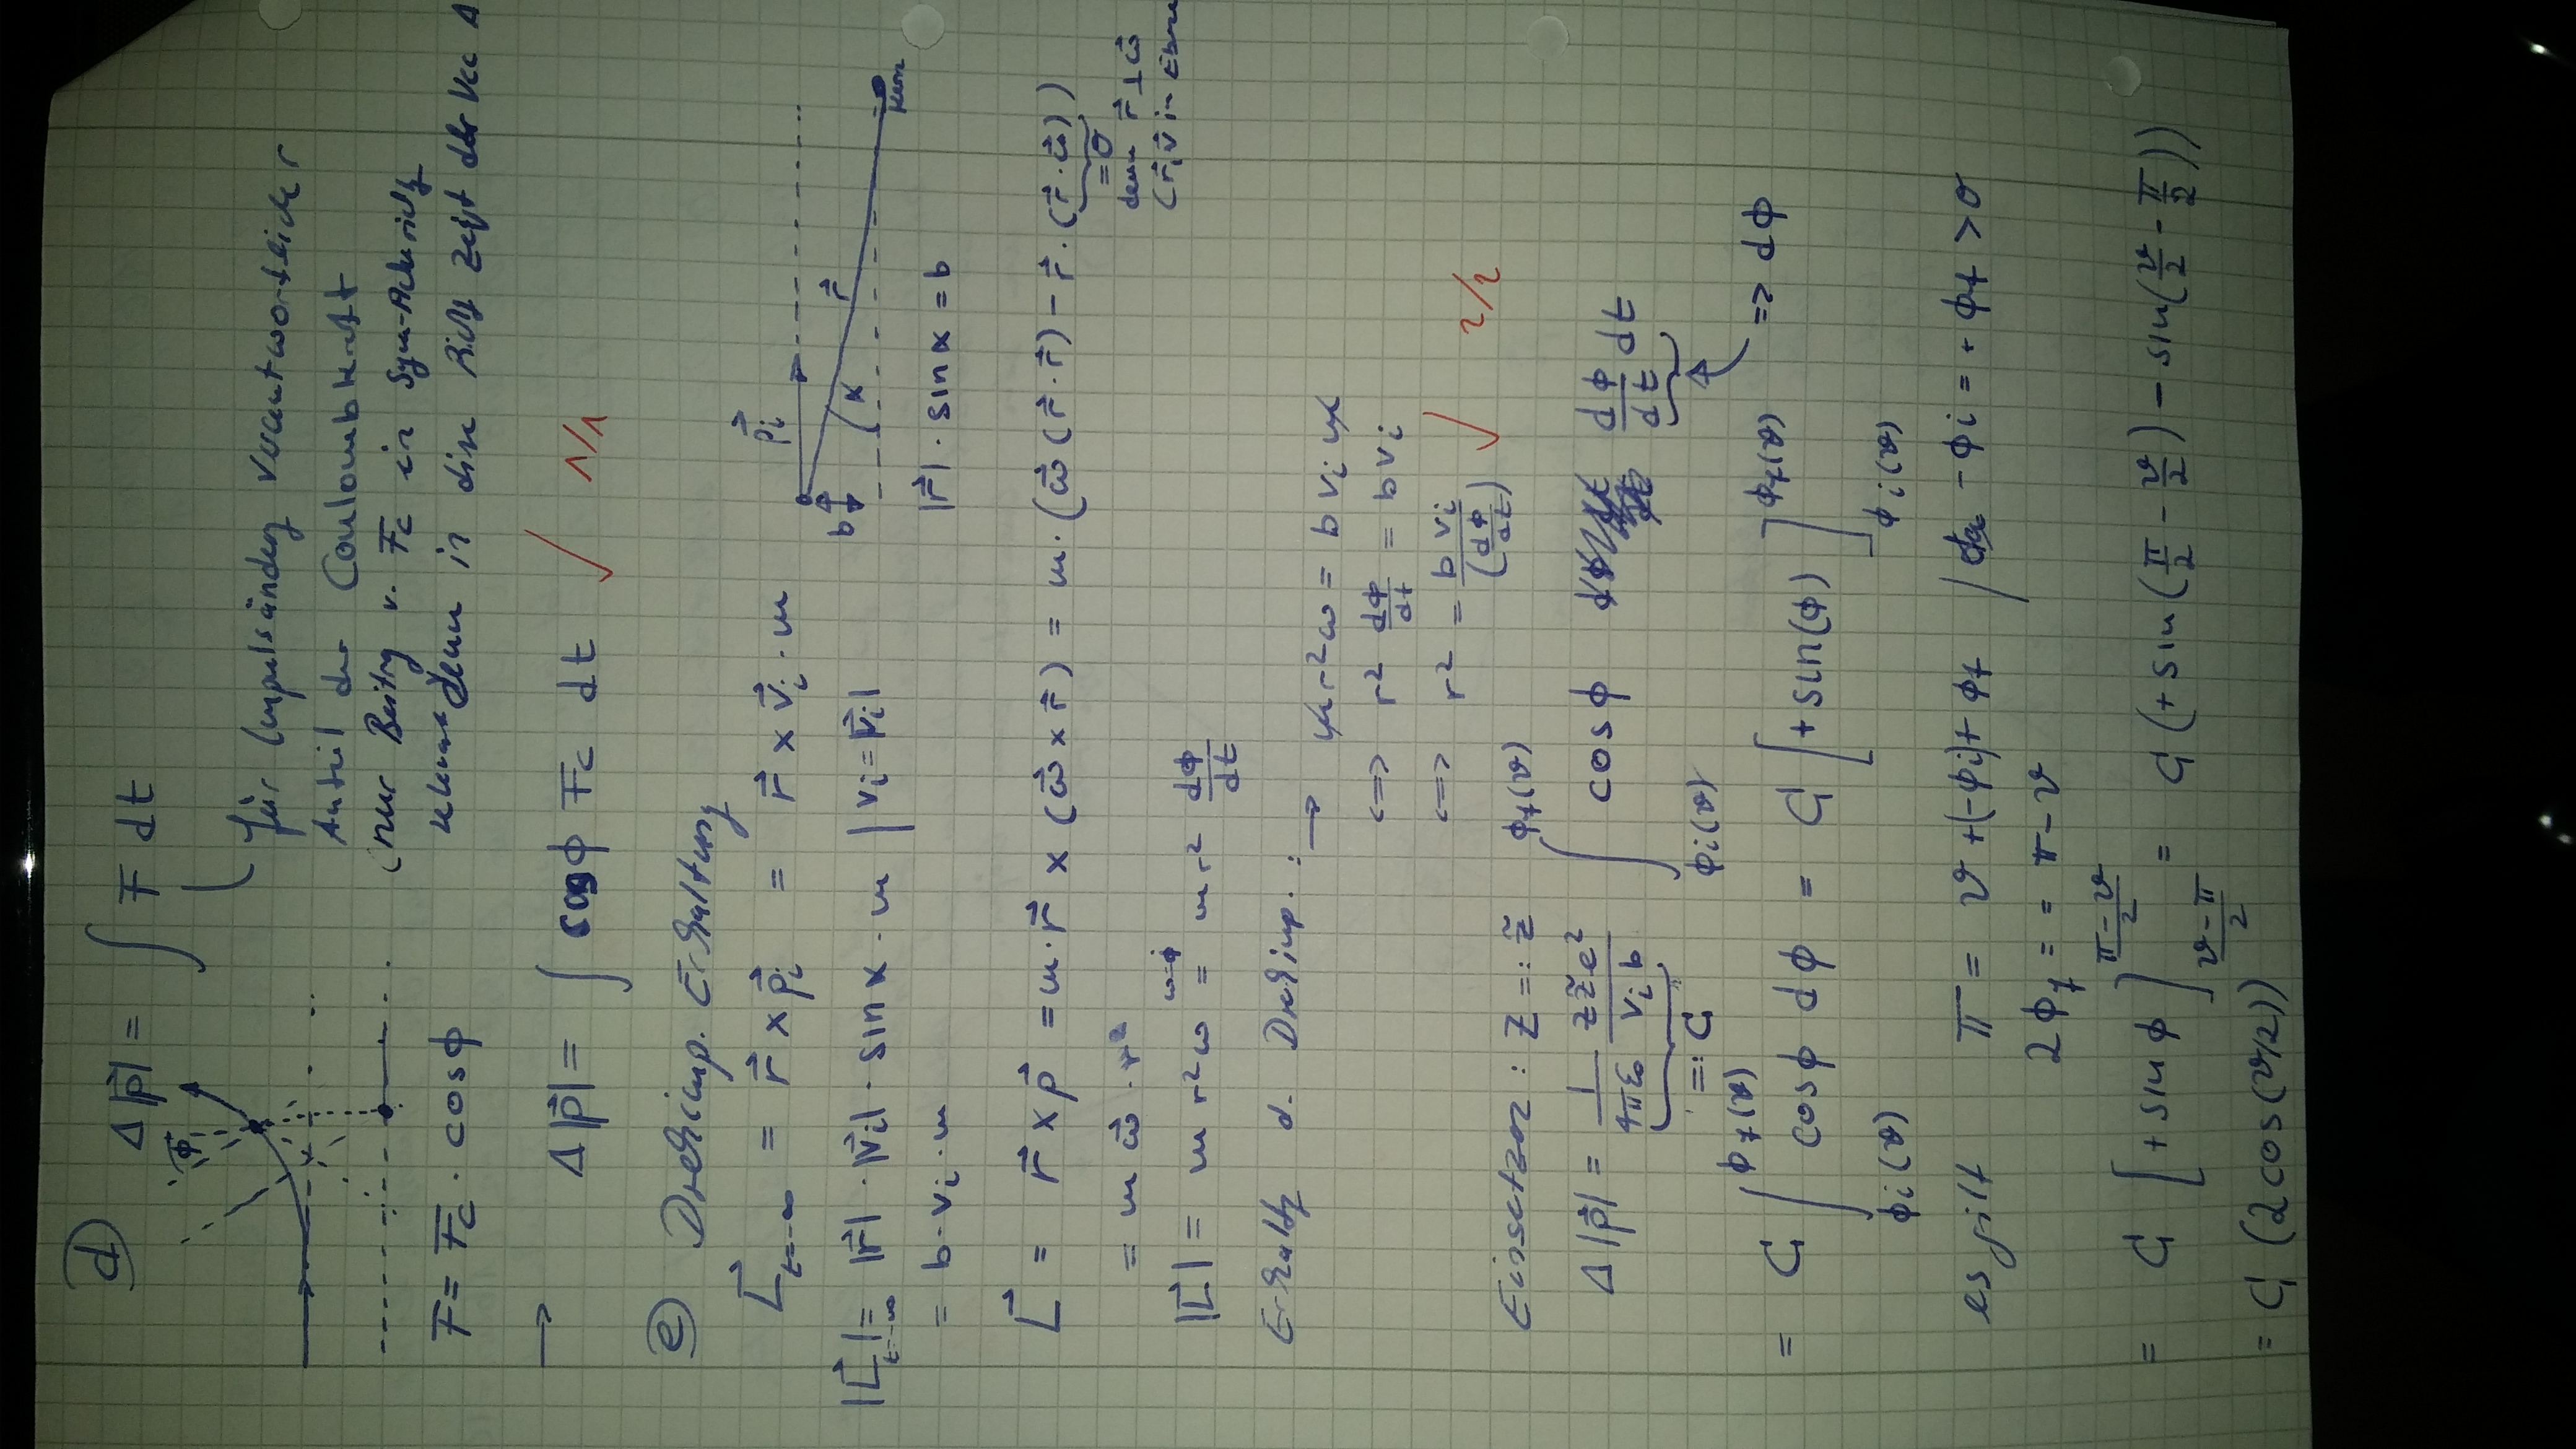 d)
Δ|p⃗| = ∫ F dt
ϕ
für Impulsänderg verantwortlicher
Anteil der Coulombkraft
(nur Beitrg v. F_C in Sym-Achsrichtg
denn in diese Richtg zeigt der Vec Δ
F = F_C · cosϕ
→ Δ|p⃗| = ∫ cosϕ F_C dt ✓ 1/1
e) Drehimp. Erhaltung
L⃗_{t=-∞} = r⃗ × p⃗_i = r⃗ × v⃗_i · m
p⃗_i
b
α
r⃗
Kern
|L⃗_{t=-∞}| = |r⃗| · |v⃗_i| · sinα · m | v_i = |v⃗_i|
= b · v_i · m
|r⃗| · sinα = b
L⃗ = r⃗ × p⃗ = m · r⃗ × (ω⃗ × r⃗) = m · (ω⃗ (r⃗ · r⃗) − r⃗ · (r⃗ · ω⃗))
= 0
denn r⃗ ⊥ ω⃗
(r⃗, v⃗ in Ebene
= m ω⃗ · r²
|L⃗| = m r² ω = m r² dϕ/dt
ω=ϕ̇
Erhaltg d. Drehimp. :
→ m r² ω = b v_i m
<=> r² dϕ/dt = b v_i
<=> r² = b v_i / (dϕ/dt) ✓ 2/2
Einsetzen : Z =: z̃
Δ|p⃗| = 1/(4πε₀) z z̃ e²/(v_i b) ∫_{ϕ_i(ϑ)}^{ϕ_f(ϑ)} cosϕ dϕ/dt dt
=: C
=> dϕ
= C ∫_{ϕ_i(ϑ)}^{ϕ_f(ϑ)} cosϕ dϕ = C [+sin(ϕ)]_{ϕ_i(ϑ)}^{ϕ_f(ϑ)}
es gilt π = ϑ + (−ϕ_i) + ϕ_f / da −ϕ_i = + ϕ_f > 0
2ϕ_f = = π − ϑ
= C [+sinϕ]_{(ϑ−π)/2}^{(π−ϑ)/2} = C (+ sin(π/2 − ϑ/2) − sin(ϑ/2 − π/2))
= C (2cos(ϑ/2))